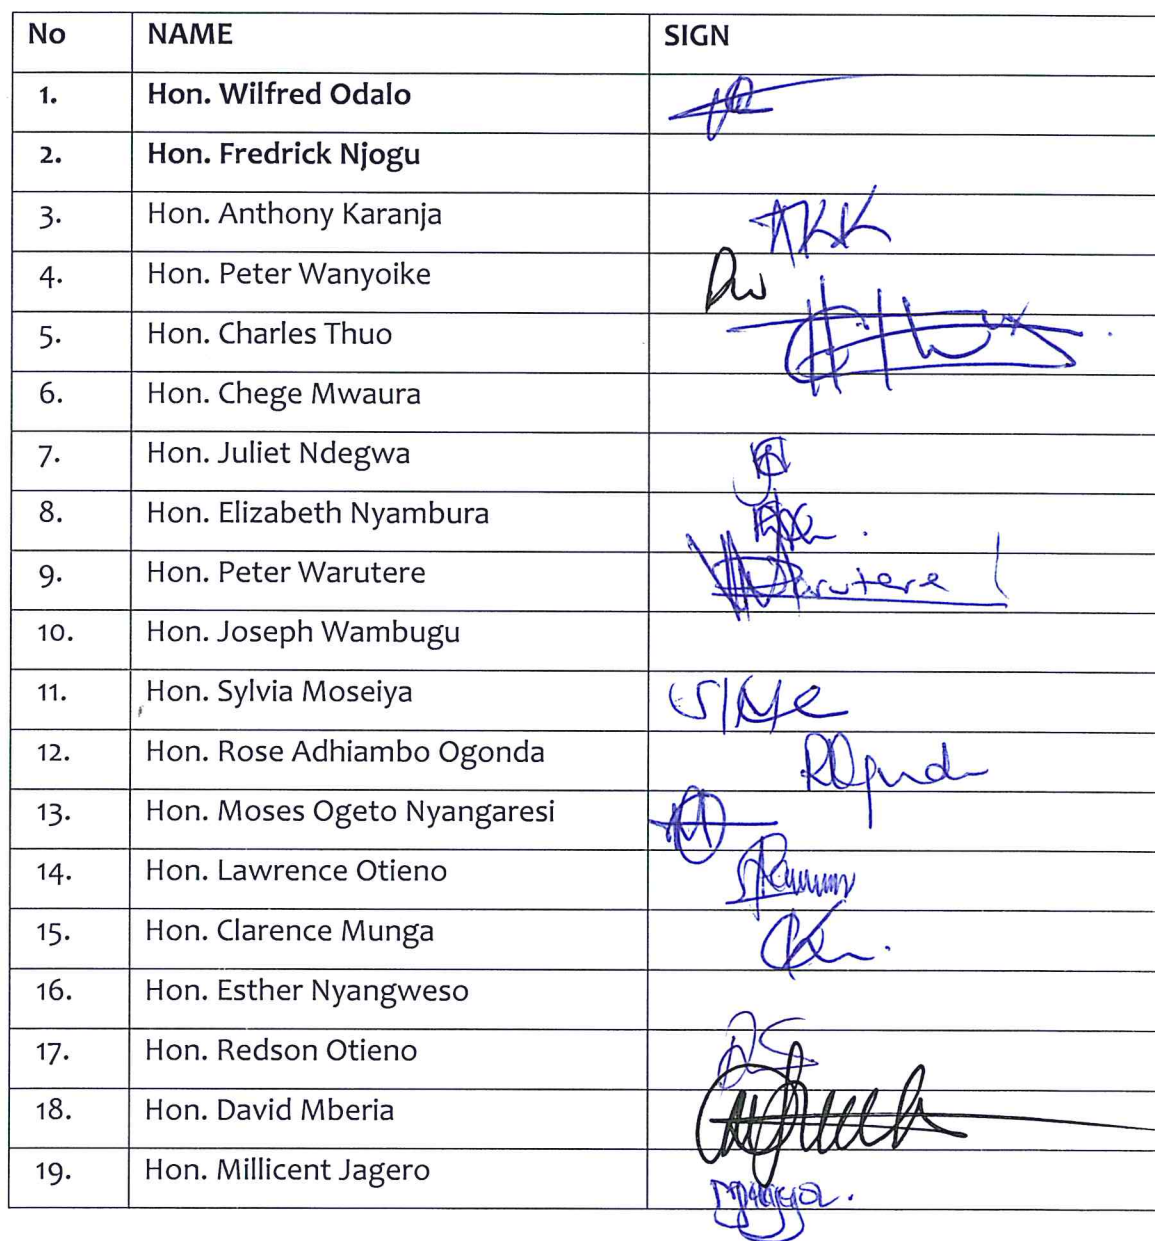 No NAME SIGN
1. Hon. Wilfred Odalo
2. Hon. Fredrick Njogu
3. Hon. Anthony Karanja AKK
4. Hon. Peter Wanyoike
5. Hon. Charles Thuo
6. Hon. Chege Mwaura
7. Hon. Juliet Ndegwa
8. Hon. Elizabeth Nyambura
9. Hon. Peter Warutere Warutere
10. Hon. Joseph Wambugu
11. Hon. Sylvia Moseiya
12. Hon. Rose Adhiambo Ogonda
13. Hon. Moses Ogeto Nyangaresi
14. Hon. Lawrence Otieno
15. Hon. Clarence Munga
16. Hon. Esther Nyangweso
17. Hon. Redson Otieno
18. Hon. David Mberia
19. Hon. Millicent Jagero